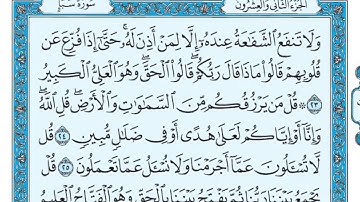 الجزء الثاني والعشرون سورة سبإ
وَلَا تَنفَعُ ٱلشَّفَٰعَةُ عِندَهُۥٓ إِلَّا لِمَنْ أَذِنَ لَهُۥ ۚ حَتَّىٰٓ إِذَا فُزِّعَ عَن
قُلُوبِهِمْ قَالُوا۟ مَاذَا قَالَ رَبُّكُمْ ۖ قَالُوا۟ ٱلْحَقَّ ۖ وَهُوَ ٱلْعَلِىُّ ٱلْكَبِيرُ
٢٣ ۞ قُلْ مَن يَرْزُقُكُم مِّنَ ٱلسَّمَٰوَٰتِ وَٱلْأَرْضِ ۖ قُلِ ٱللَّهُ ۖ
وَإِنَّآ أَوْ إِيَّاكُمْ لَعَلَىٰ هُدًى أَوْ فِى ضَلَٰلٍ مُّبِينٍ ٢٤ قُل
لَّا تُسْـَٔلُونَ عَمَّآ أَجْرَمْنَا وَلَا نُسْـَٔلُ عَمَّا تَعْمَلُونَ ٢٥ قُلْ
يَجْمَعُ بَيْنَنَا رَبُّنَا ثُمَّ يَفْتَحُ بَيْنَنَا بِٱلْحَقِّ وَهُوَ ٱلْفَتَّاحُ ٱلْعَلِيمُ